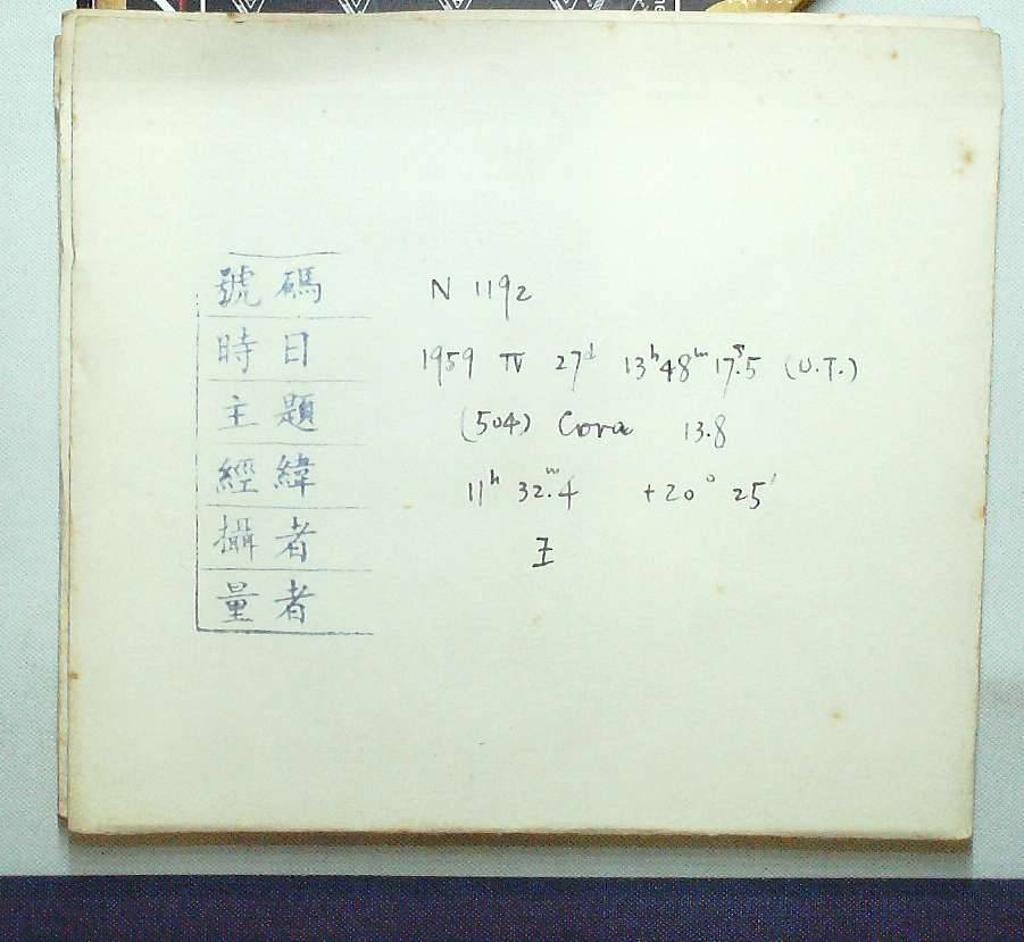 號碼 N 1192
時日 1959 IV 27ᵈ 13ʰ48ᵐ17ˢ.5 (U.T.)
主題 (504) Cora 13.8
經緯 11ʰ 32ᵐ.4 +20° 25′
攝者 王
量者